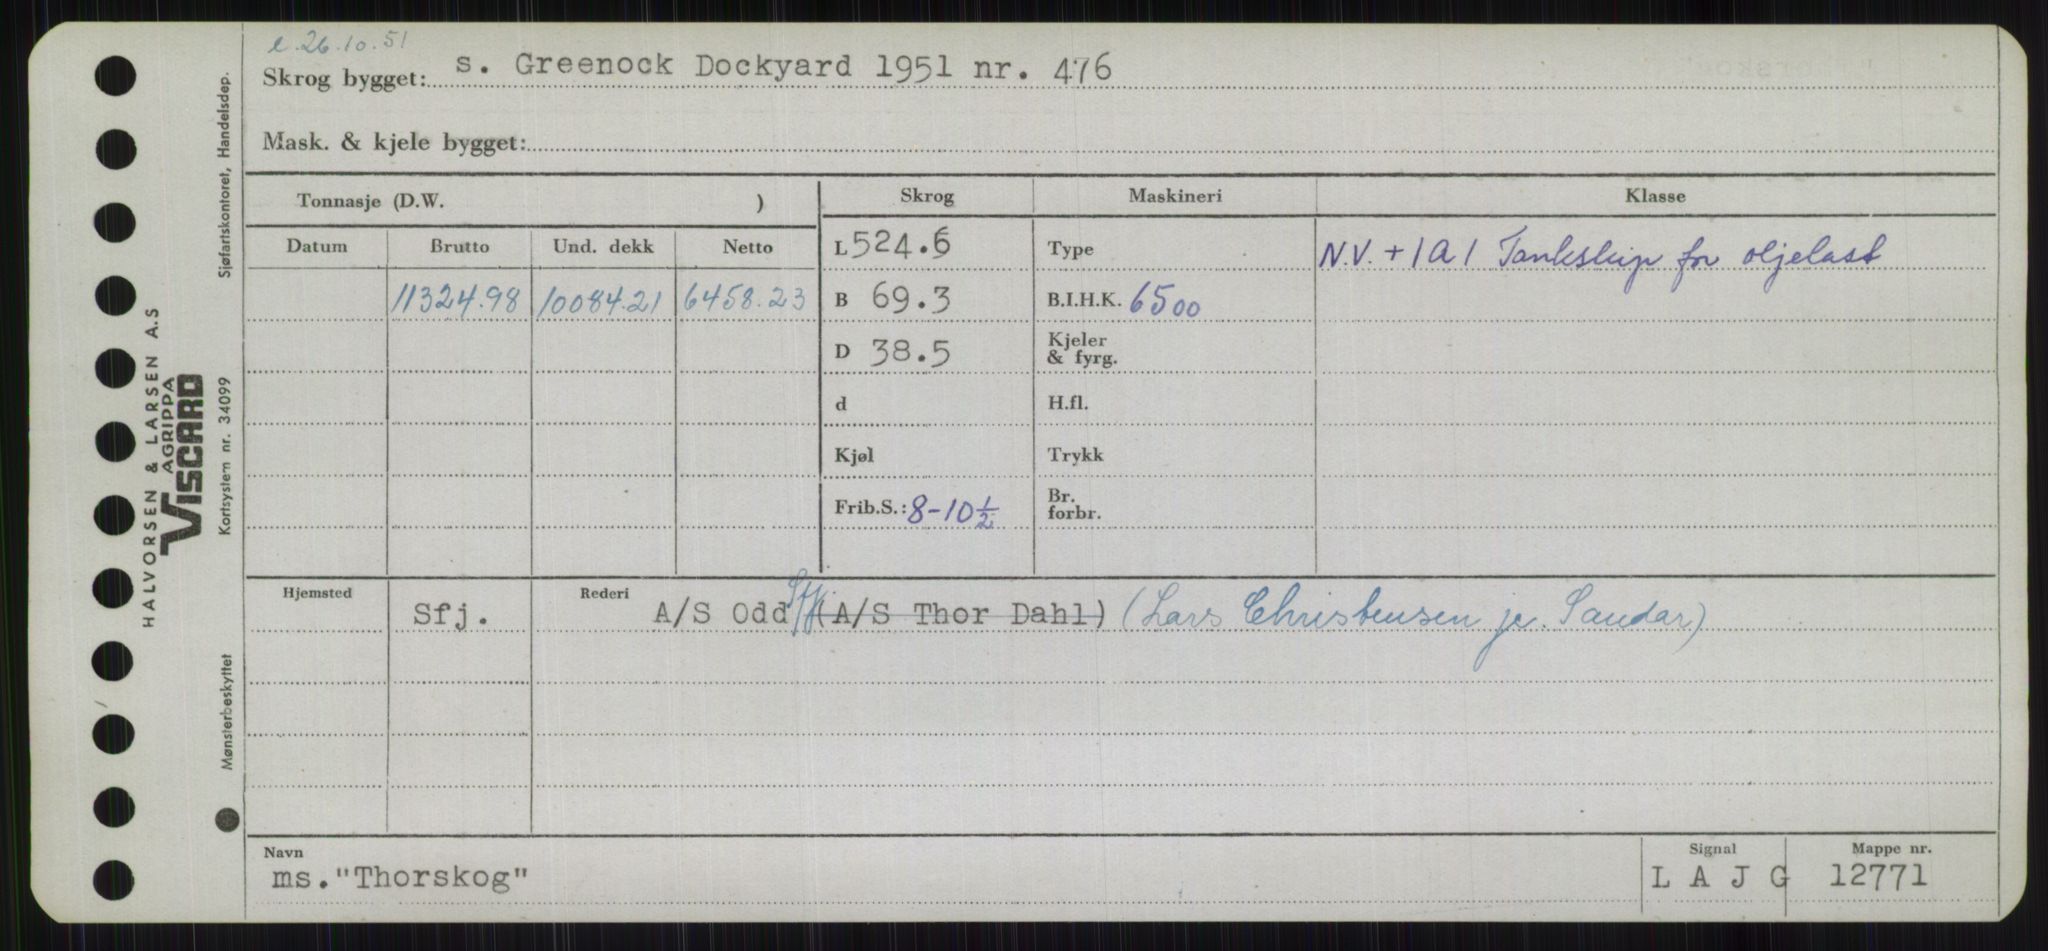 e. 26.10.51
Skrog bygget: s. Greenock Dockyard 1951 nr. 476
Mask. & kjele bygget:
Tonnasje (D.W. )
Skrog Maskineri Klasse
Datum Brutto Und. dekk Netto
L 524.6 Type N.V. +1A1 Tankskip for oljelast
11324.98 10084.21 6458.23 B 69.3 B.I.H.K. 6500
D 38.5 Kjeler & fyrg.
d H.fl.
Kjøl Trykk
Frib.S.: 8-10½ Br. forbr.
Hjemsted Sfj. Rederi A/S Odd (A/S Thor Dahl) (Lars Christensen jr. Sandar)
Navn
ms. "Thorskog"
Signal
L A J G
Mappe nr.
12771
HALVORSEN & LARSEN A.S
AGRIPPA
VISCARD
Mønsterbeskyttet Kortsystem nr. 34099 Sjøfartskontoret, Handelsdep.